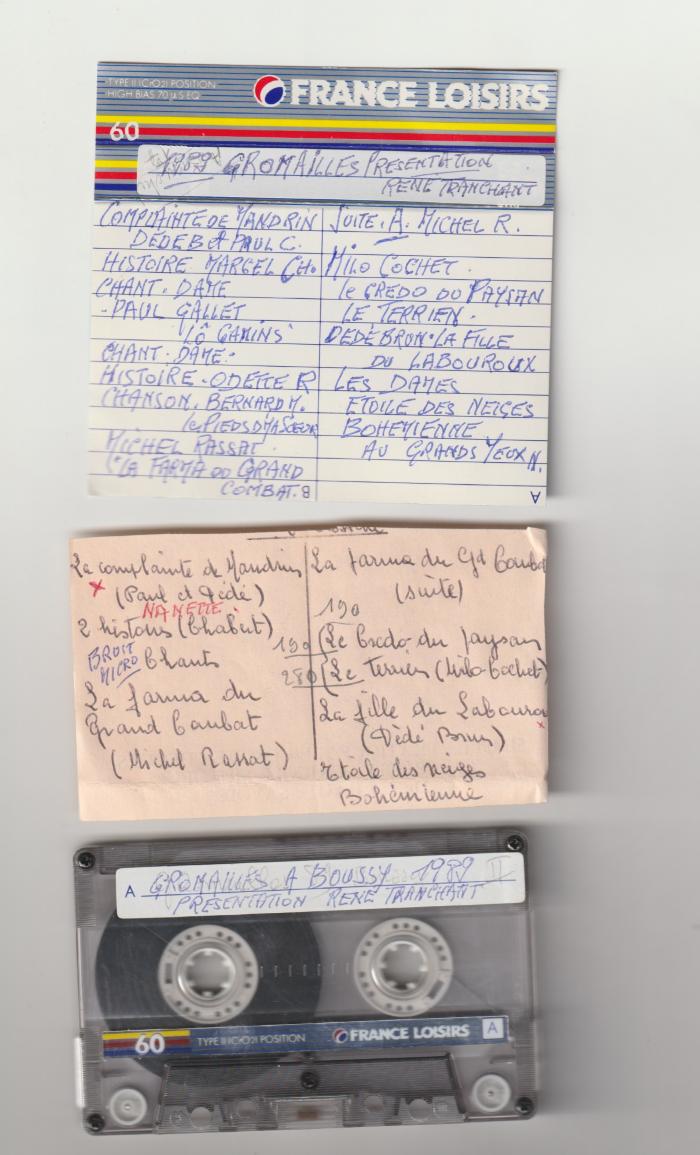 TYPE II (CrO2) POSITION
HIGH BIAS 70 µS EQ
FRANCE LOISIRS
60
1989 GROMAILLES PRESENTATION
RENE TRANCHANT
COMPLAINTE DE MANDRIN
DEDE B et PAUL C.
HISTOIRE MARCEL CH.
CHANT. DAME
- PAUL GALLET
"LÔ GAMINS"
CHANT. DAME.
HISTOIRE. ODETTE R
CHANSON. BERNARD M.
le PIEDS D MA SOEUR
MICHEL RASSAT.
"LA FARMA DU GRAND
COMBAT. B
SUITE. A. MICHEL R.
MILO COCHET.
le CREDO DU PAYSAN
LE TERRIEN.
DEDE BRUN. LA FILLE
DU LABOUROUX
LES DAMES
ETOILE DES NEIGES
BOHEMIENNE
AU GRANDS YEUX N.
A
La complainte de Mandrin
x (Paul et Dédé)
NANETTE.
2 histoires (Chabert)
BRUIT
MICRO Chants
La farma du
Grand Combat
(Michel Rassat)
La farma du Gd Combat
(suite)
190
190 (Le Credo du paysan
280 (Le Terrien (Milo Cochet)
La fille du Labourou
x
(Dédé Brun)
Etoile des neiges
Bohémienne
A GROMAILLES A BOUSSY 1989 II
PRESENTATION RENE TRANCHANT
60 TYPE II (CrO2) POSITION FRANCE LOISIRS A